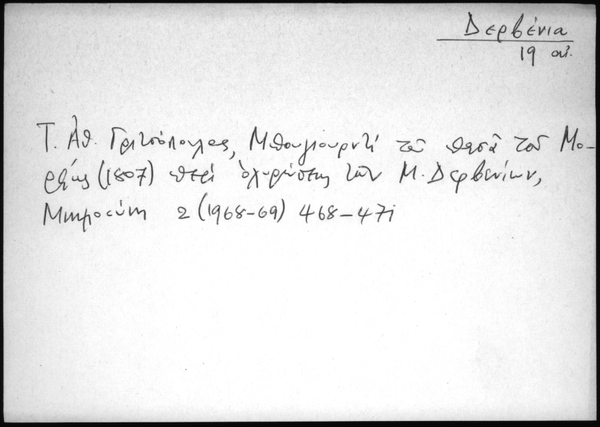 Δερβένια
19 αἰ.
Τ. Ἀθ. Γριτσόπουλος, Μπουγιουρντί τοῦ πασᾶ τοῦ Μο-
ρέως (1807) περί ὀχυρώσης τῶν Μ. Δερβενίων,
Μνημοσύνη 2 (1968-69) 468-471